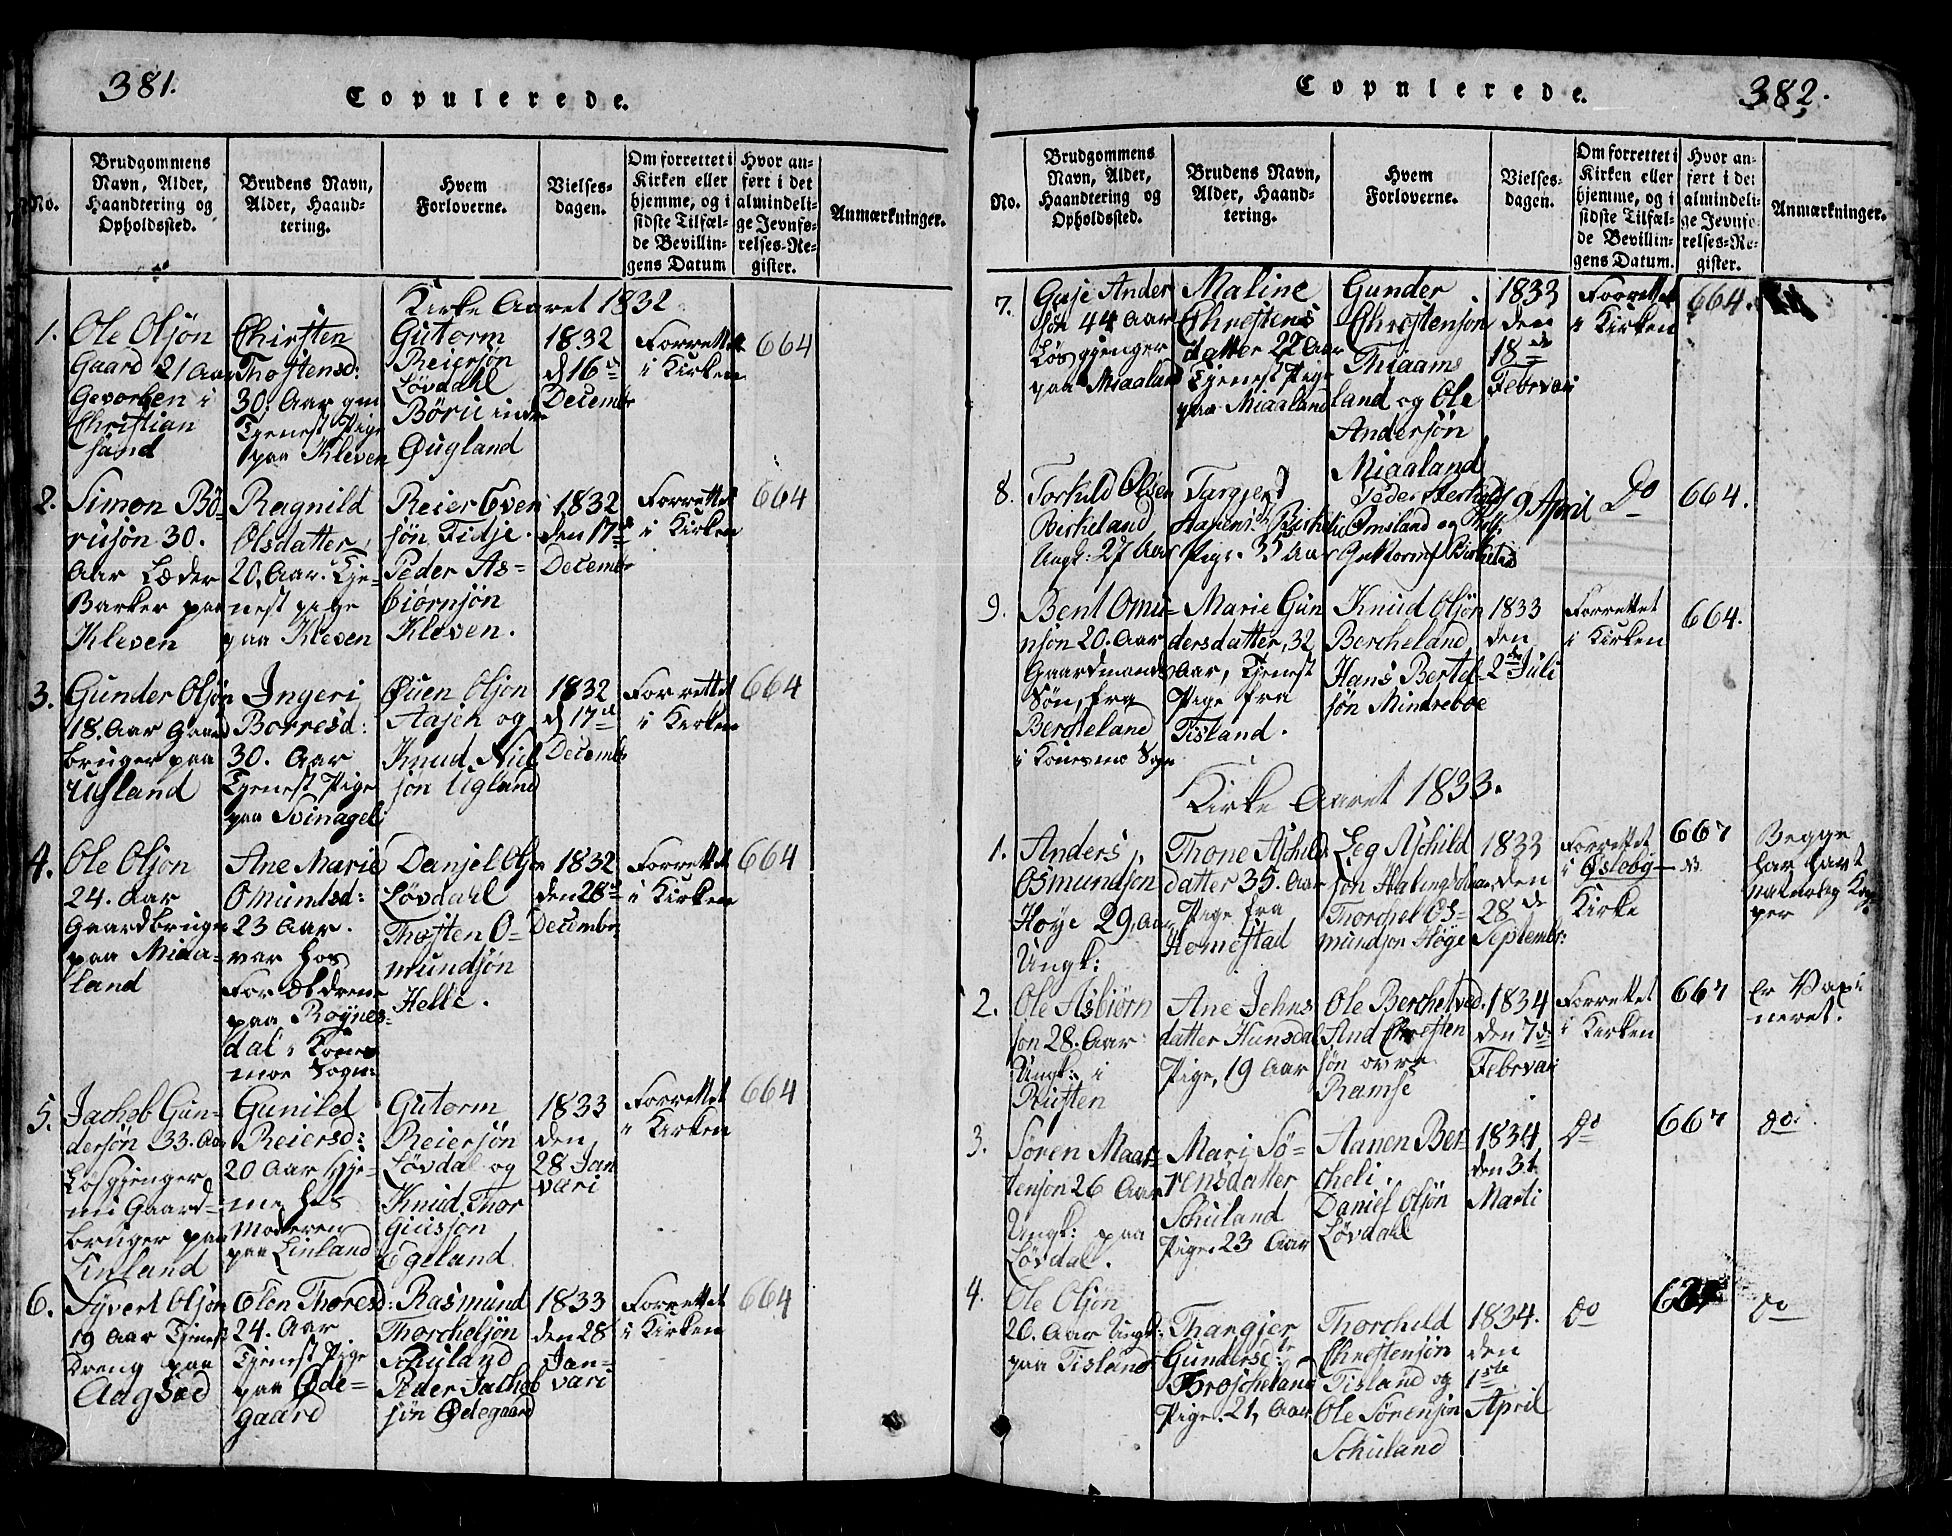 381.
Copulerede.
No.
Brudgommens
Navn, Alder,
Haandtering og
Opholdssted.
Brudens Navn,
Alder, Haand-
tering.
Hvem
Forloverne.
Vielses-
dagen.
Om forrettet i
Kirken eller
hjemme, og i
sidste Tilfæl-
de Bevillin-
gens Datum
Hvor an-
ført i det
almindeli-
ge Jevnfø-
relses-Re-
gister.
Anmærkninger.
Kirke Aaret 1832
1.
Ole Olsøn
Gaard 21 Aar
Gevorben i
Christian
sand
Chirsten
Thostensd:
30. Aar gm
Tjenest Pige
paa Kleven
Gutorm
Reiersøn
Løvdahl
Børu
Øugland
1832
d 16de
Decembr
Forrettet
i Kirken
664
2.
Simon Bö-
rusøn 30.
Aar Læder
Barker paa
Kleven
Ragnild
Olsdatter,
20, Aar. Tje-
nest pige
paa Kleven
Reier Even
søn Fidje.
Peder As-
biørnsøn
Kleven.
1832
den 17de
Decembr
Forrettet
i Kirken
664
3.
Gunder Olsøn
18. Aar Gaard
bruger paa
Ugland
Ingeri
Borresd:
30. Aar
Tjenest Pige
paa Svinagel
Øuen Olson
Aasen og
Knud Niel
søn Ugland
1832
d 17de
Decembr
Forrettet
i Kirken
664
4.
Ole Olson
24. Aar
Gaardbruger
paa Miaa-
land
Ane Marie
Omundsd:
23 Aar.
var hos
Forældrene
paa Røynes-
dal i Kones
moe Sogn:
Danjel Olsøn
Løvdahl
Thosten O-
mundsøn
Helle.
1832
den 28de
Decembr
Forrettet
i Kirken
664
5.
Jachob Gun-
dersøn 33. Aar
Losgjenger
nu Gaard-
bruger paa
Linland
Gunild
Reiersd:
20 Aar Hje-
me hos
Moderen
paa Linland
Gutorm
Reiersøn
Løvdal og
Knud Thor
giusson
Egeland
1833
den
28 Jan
vari
Forrettet
i Kirken
664
6.
Syvert Olsøn
19 Aar Tjenest
Dreng paa
Aagsæd
Elen Thoresd:
24. Aar
Tjenest Pige
paa Øde-
gaard
Rasmund
Thorchelsøn
Schuland
Peder Jachob
søn Ødegaard
1833
den 28
Jan-
vari
Forrettet
i Kirken
664
Copulerede.
382.
No.
Brudgommens
Navn, Alder,
Haandtering og
Opholdssted.
Brudens Navn,
Alder, Haand-
tering.
Hvem
Forloverne.
Vielses-
dagen.
Om forrettet i
Kirken eller
hjemme, og i
sidste Tilfæl-
de Bevillin-
gens Datum.
Hvor an-
ført i det
almindeli-
ge Jevnfø-
relses-Re-
gister.
Anmærkninger.
7.
Guje Ander
søn 44 Aar
Løsgjenger
paa Miaaland
Maline
Chrestens
datter 22 Aar
Tjenest Pige
paa Miaaland
Gunder
Chrestensøn
Thiaams
land og Ole
Andersøn
Miaaland
1833
den
18de
Febrvari
Forrettet
i Kirken
664.
8.
Torkild Olsen
Berkeland
Ungk: 27 Aar
Targjerd
Pige. 35 Aar
Peder
Omsland og
19 April
Do
664.
9.
Bent Omu-
nsøn 20. Aar
Gaardmands
Søn, fra
Bercheland
i Konesmo Sogn
Marie Gun
dersdatter, 32
Aar, Tjenest
Pige fra
Tisland.
Knud Olsøn
Bercheland
Hans Bertel-
søn Mindreboe
1833
den
2de Juli
Forrettet
i Kirken
664.
Kirke Aaret 1833.
1.
Anders,
Osmundson
Høye 29, Aar
Ungk:
Thone Aschilds
datter 35. Aar
Pige fra
Homestad
Leg Aschild
son
Thorchel Os-
mundson Høge
1833
den
28de
Septembr:
Forrettet
i Øslebg-
Kirke
667
N.
Begge
har havt
naturlig Kop
per
2.
Ole Asbiørn
son 28. Aar
Ungk: i
Risten
Ane Jehns
datter Hunsdal
Pige, 19 Aar
Ole Berchelvd.
And Chresten
søn ovre
Ramse
1834
den 7de
Febrvari
Forrettet
i Kirken
667
Er Vaxi
neret.
3.
Søren Maar-
tenson 26 Aar
Ungk: paa
Løvdal.
Mari Sø-
rensdatter
Schuland
Pige. 23 Aar
Aanen Ber-
cheli.
Daniel Olsøn
Løvdahl
1834
den 31
Marti
Do
667
do.
4.
Ole Olson
26. Aar Ungk:
paa Tisland
Thangjer
Gundersd:
Broscheland
Pige. 21, Aar
Thorchild
Chrestensøn
Tisland og
Ole Sørensøn
Schuland
1834.
den
1ste
April
do
do